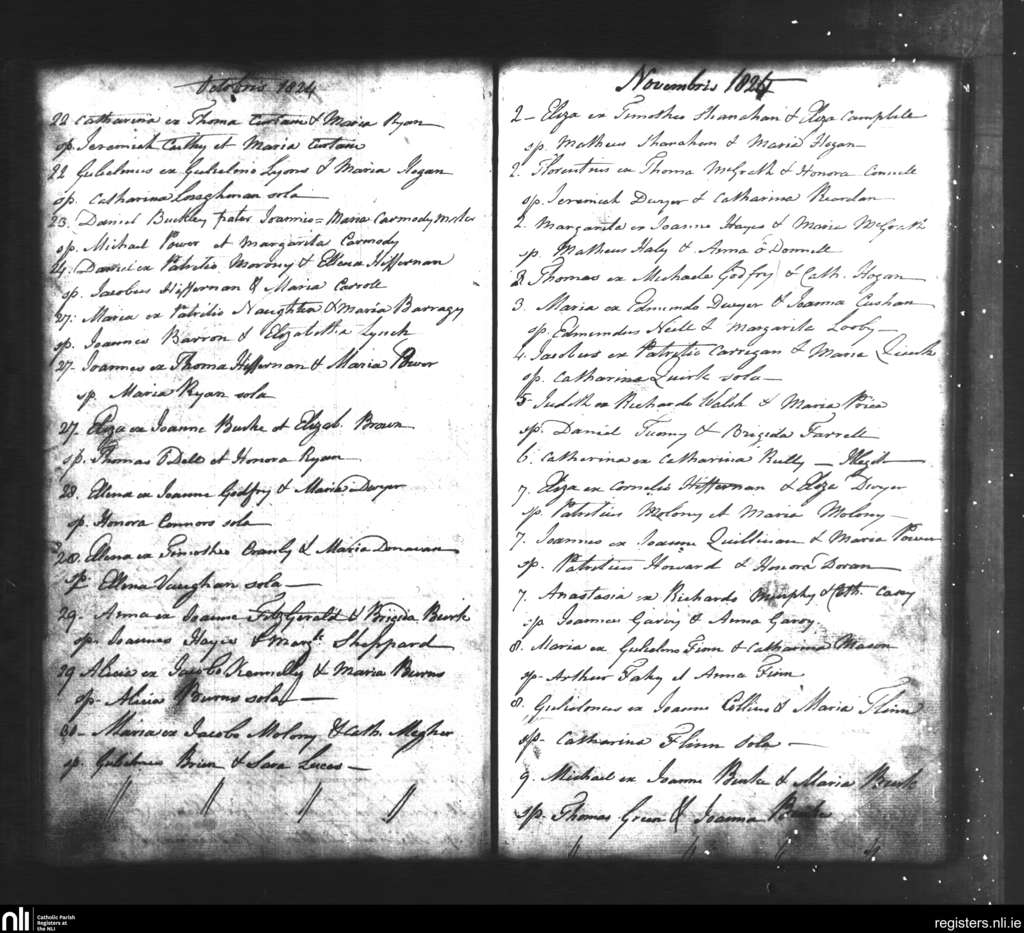 Octobris 1824
22 Catharina ex Thoma Curtain & Maria Ryan
sp. Jeremiah Cathy et Maria Curtain
22 Gulielmus ex Gulielmo Lyons & Maria Hogan
sp. Catharina sola
23. Daniel Buckley pater Joannis = Maria Carmody mater
sp. Michael Power et Margarita Carmody
24. Daniel ex Patritio Moroney & Ellena Heffernan
sp. Jacobus Heffernan & Maria Carroll
27. Maria ex Patritio Naughten & Maria Barragy
sp. Joannes Barron & Elizabetha Lynch
27. Joannes ex Thoma Heffernan & Maria Power
sp. Maria Ryan sola
27 Eliza ex Joanne Burke et Elizab. Brown
sp. Thomas O'Dell et Honora Ryan
28. Ellena ex Joanne Godfry & Maria Dwyer
sp. Honora Connors sola
28. Ellena ex Timotheo Crawly & Maria Donavan
sp. Ellena Vaughan sola —
29. Anna ex Joanne FitzGerald & Brigida Burk
sp. Joannes Hayes & Margt. Sheppard
29 Alicia ex Jacobo Kennelly & Maria Burns
sp. Alicia Burns sola —
30 — Maria ex Jacobo Molony & Cath. Megher
sp. Gulielmus Brien & Sara Luces —
Novembris 1824
2 — Eliza ex Timotheo Shanahan & Eliza Campbele
sp. Matheus Shanahan & Maria Hogan
2. Florentius ex Thoma McGrath & Honora Connell
sp. Jeremiah Dwyer & Catharina Reardan
2. Margarita ex Joanne Hayes & Maria McGrath
sp. Matheus Haly & Anna O'Donnell
3. Thomas ex Michaele Godfry & Cath. Hogan
3. Maria ex Edmundo Dwyer & Joanna Cashan
sp. Edmundus Neill & Margarita Looby —
4. Jacobus ex Patritio Carregan & Maria Quirk
sp. Catharina Quirk sola —
5 Judith ex Richardo Walsh & Maria Price
sp. Daniel Tuomy & Brigida Farrell
6. Catherina ex Catharina Reilly — Illegit
7. Eliza ex Cornelio Heffernan & Eliza Dwyer
sp. Patritius Molony et Maria Molony —
7. Joannes ex Joanne Quillinan & Maria Power
sp. Patritius Howard & Honora Doran
7. Anastasia ex Richardo Murphy & Cath. Casey
sp Joannes Garvy & Anna Garvy.
8. Maria ex Gulielmo Finn & Catharina Mason
sp. Arthur Fahy et Anna Finn
8. Gulielmus ex Joanne Collins & Maria Flinn
sp. Catharina Flinn sola —
9 Michael ex Joanne Burke & Maria Burk
sp. Thomas Green & Joanna Burke
nli
Catholic Parish
Registers at
the NLI
registers.nli.ie